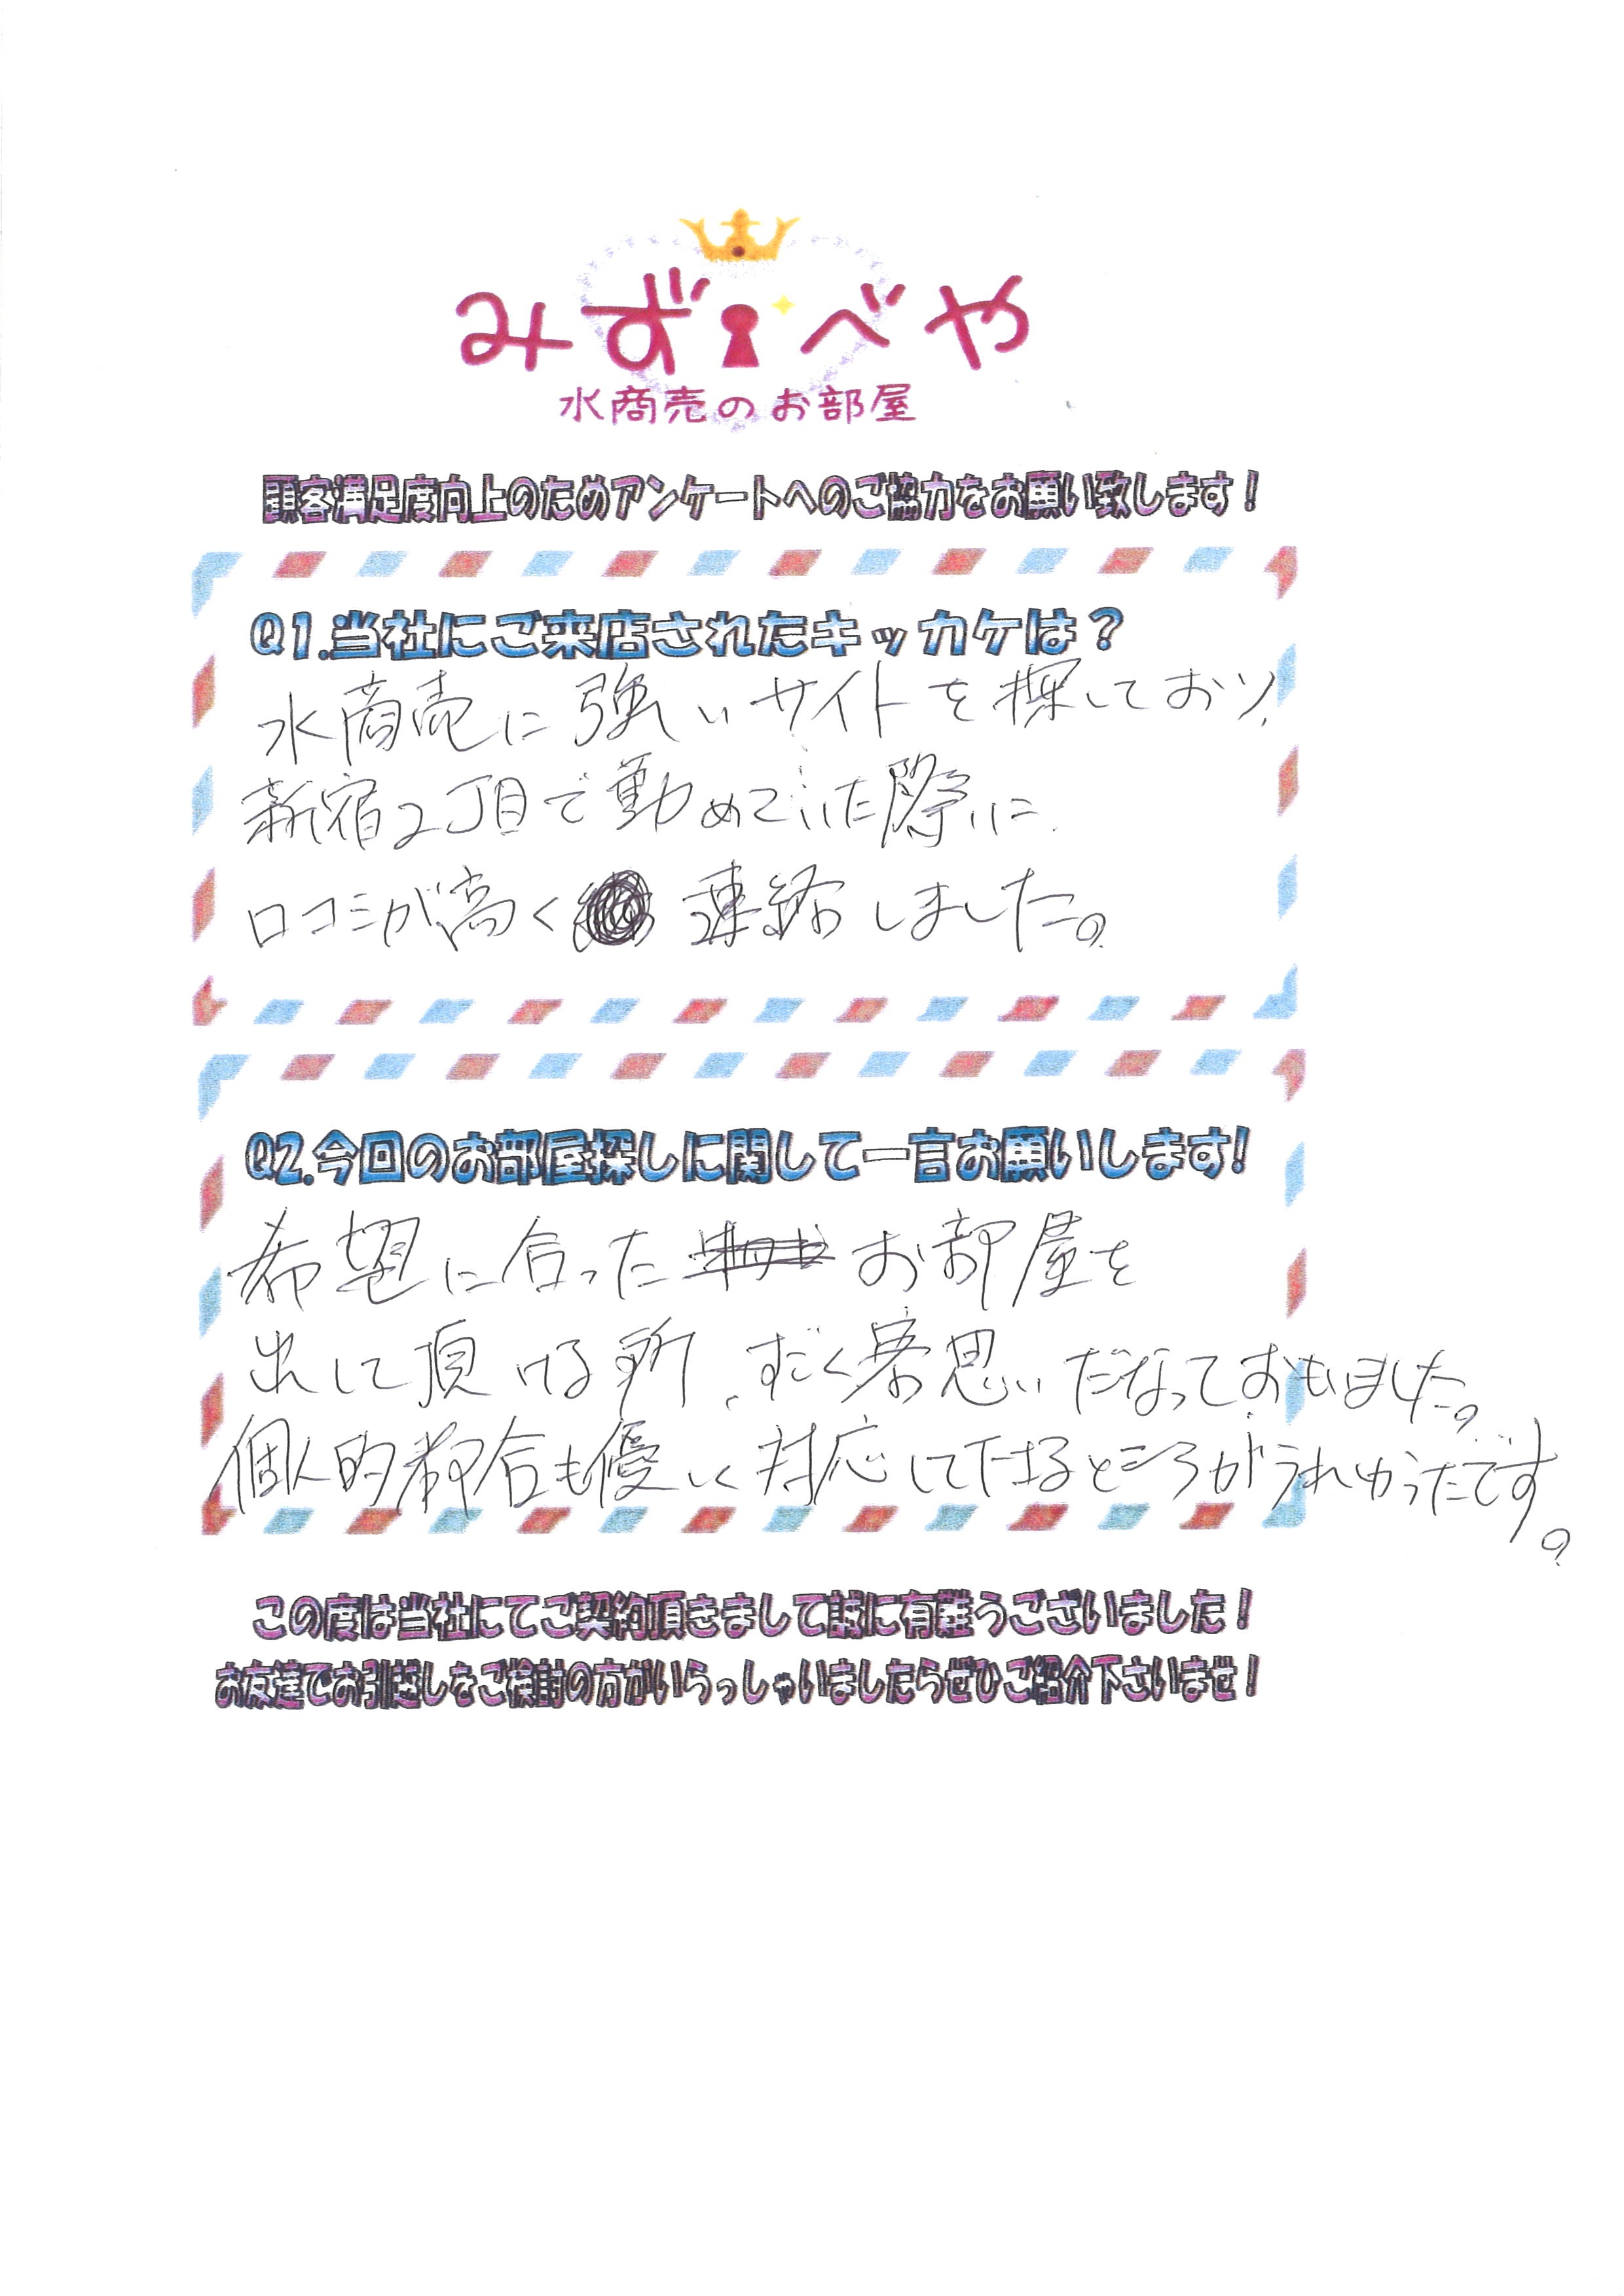 みずべや
水商売のお部屋
顧客満足度向上のためアンケートへのご協力をお願い致します！
Q1.当社にご来店されたキッカケは？
水商売に強いサイトを探しており、
新宿2丁目で勤めていた際に
口コミが高く 連絡しました。
Q2.今回のお部屋探しに関して一言お願いします!
希望に合った お部屋を
出して頂ける所、すごく 思いだなっておもいました。
個人的都合も優しく対応して下さるところがうれしかったです。
この度は当社にてご契約頂きまして誠に有難うございました！
お友達でお引越しをご検討の方がいらっしゃいましたらぜひご紹介下さいませ！